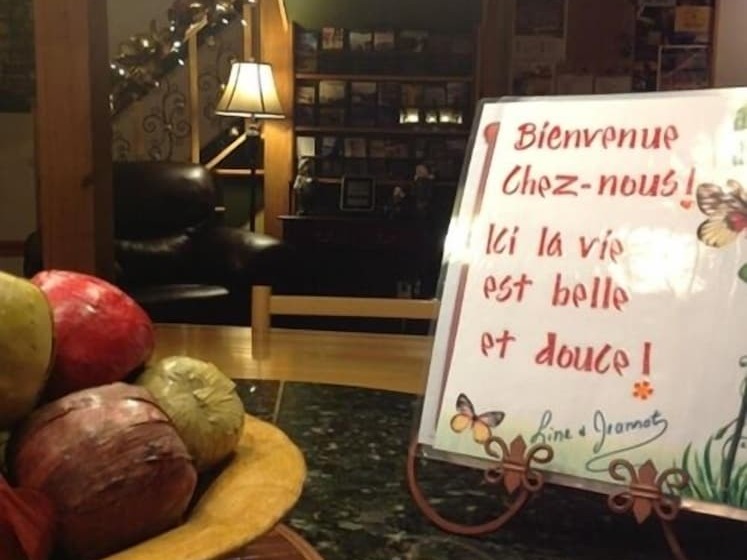 Bienvenue
Chez-nous!
Ici la vie
est belle
et douce!
Line & Jeannot